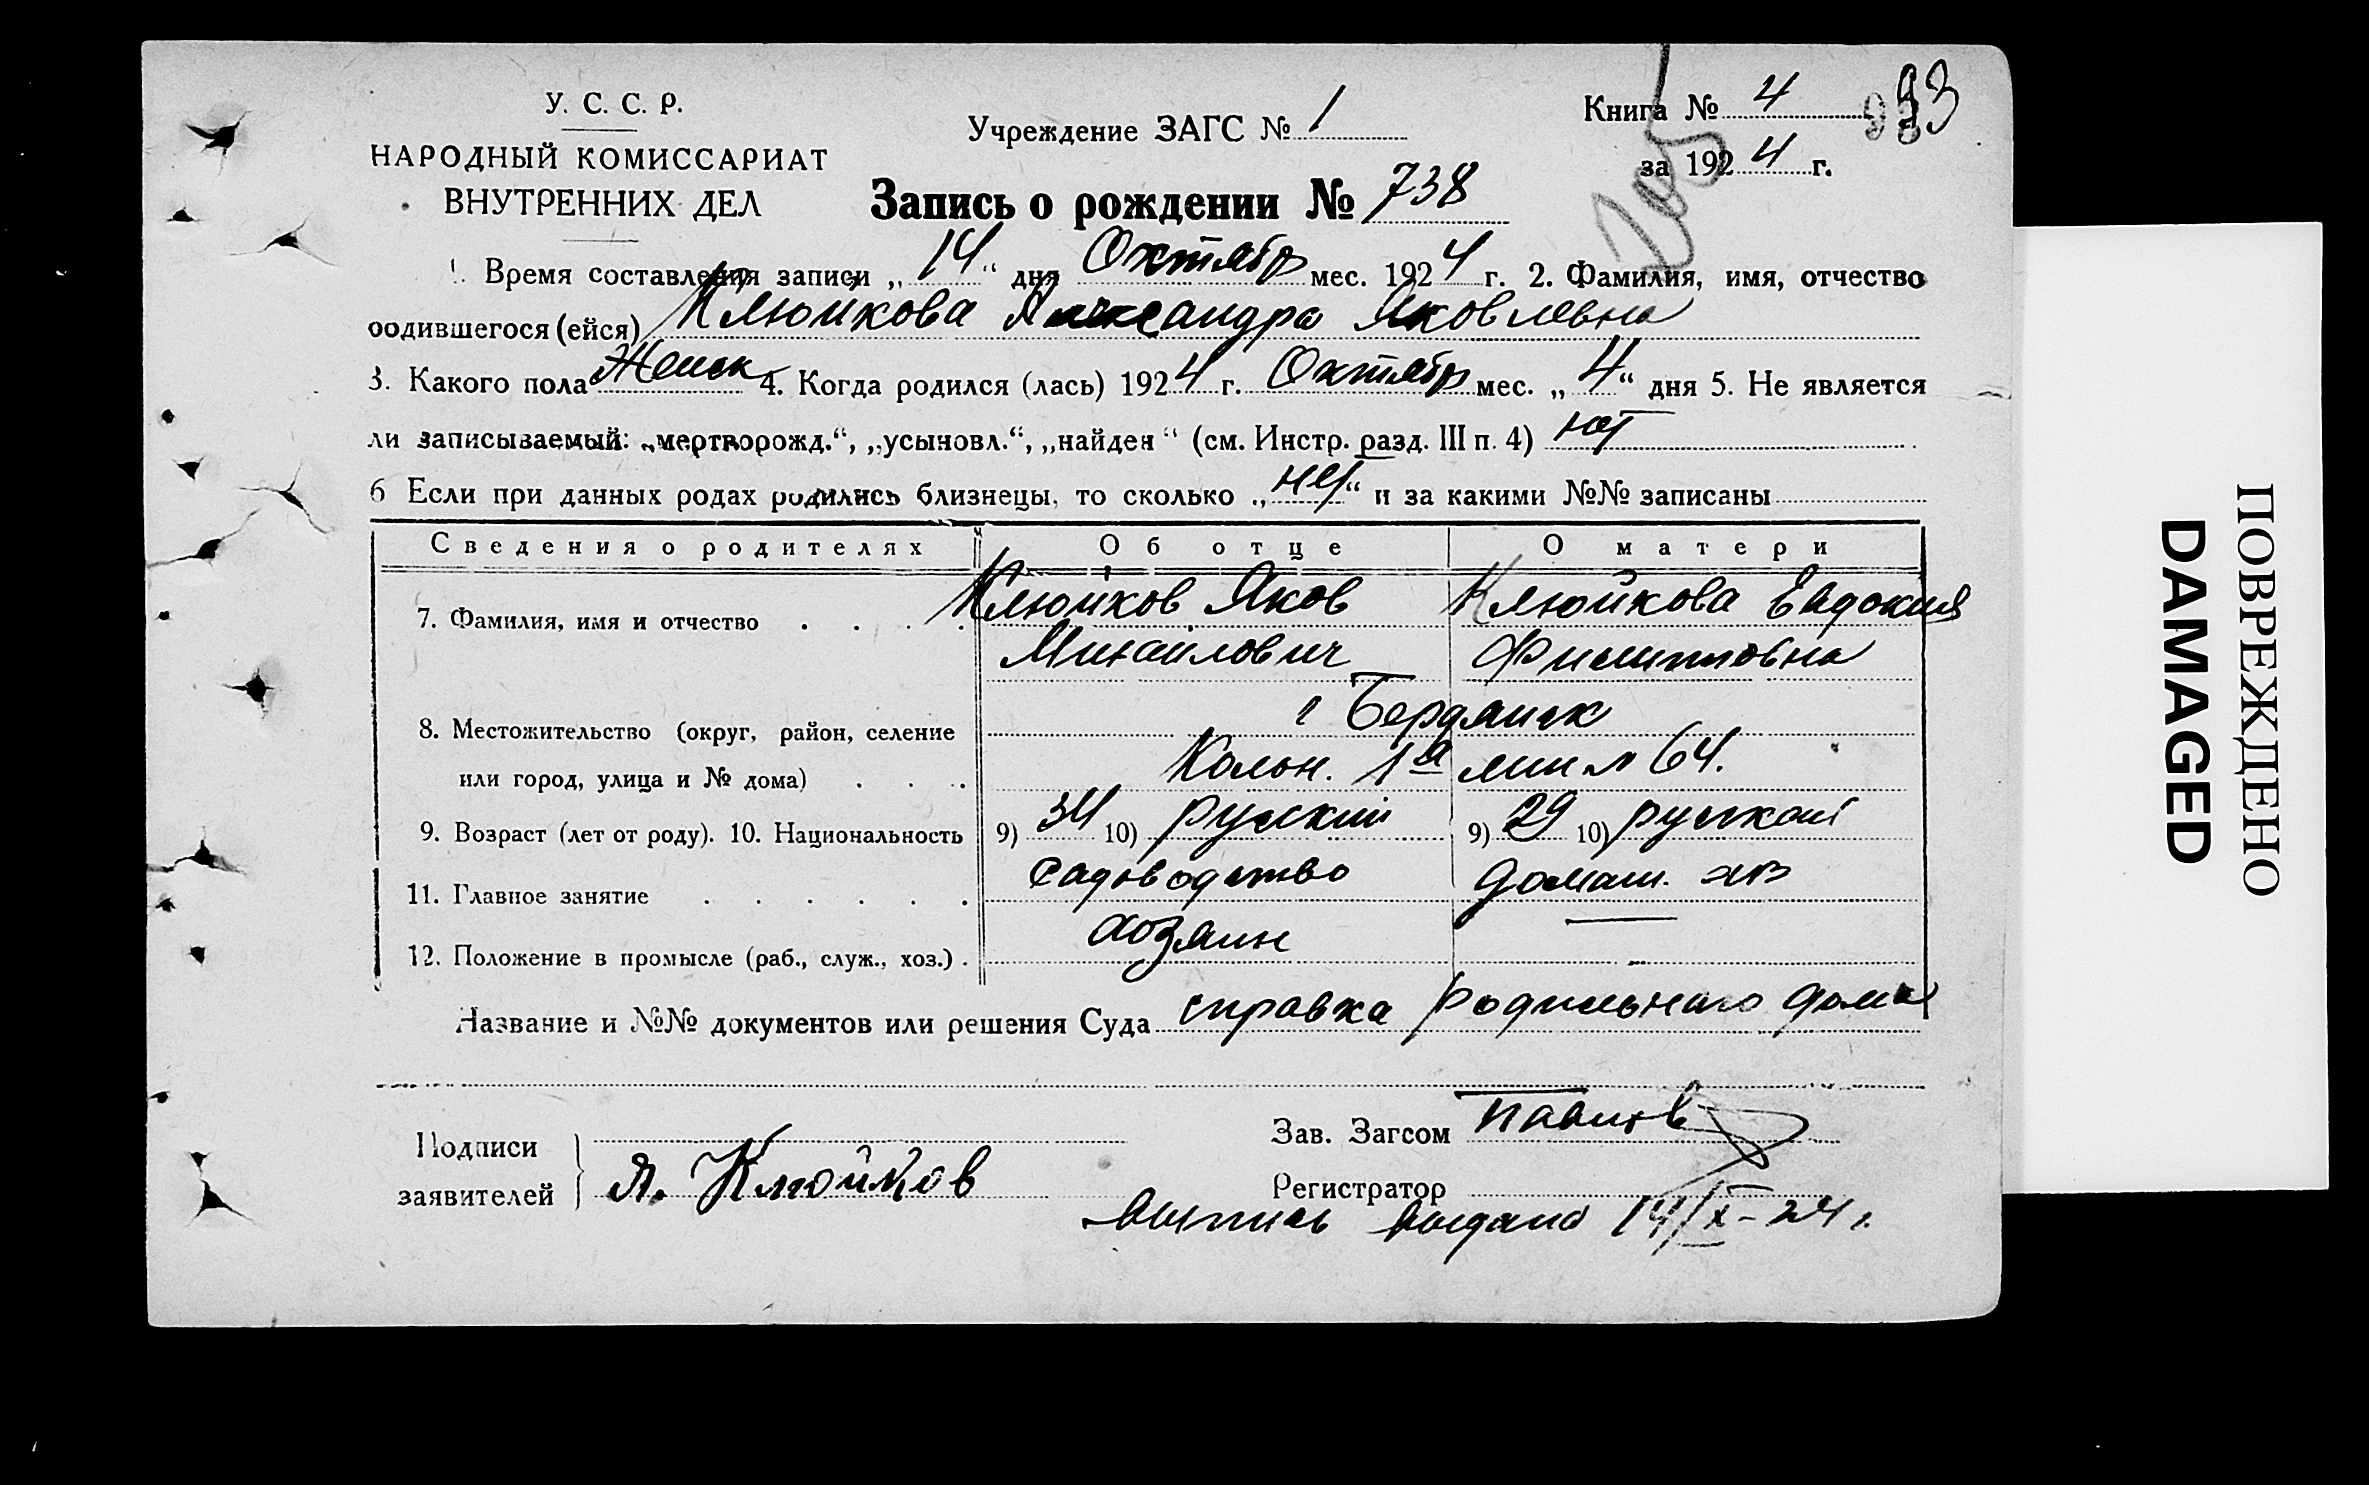 У. С. С. Р.
НАРОДНЫЙ КОМИССАРИАТ
ВНУТРЕННИХ ДЕЛ
Учреждение ЗАГС № 1
Книга № 4
за 1924 г.
Запись о рождении № 738
1. Время составления записи „14“ дня Октябр мес. 1924 г. 2. Фамилия, имя, отчество
родившегося (ейся) Клюйкова Александра Яковлевна
3. Какого пола Женск 4. Когда родился (лась) 1924 г. Октябр мес. „4“ дня 5. Не является
ли записываемый: „мертворожд.“, „усыновл.“, „найден“ (см. Инстр. разд. III п. 4) нет
6 Если при данных родах родились близнецы, то сколько „нет“ и за какими №№ записаны
Сведения о родителях Об отце О матери
7. Фамилия, имя и отчество Клюйков Яков Клюйкова Евдокия
Михайлович Филипповна
г Бердянск
8. Местожительство (округ, район, селение
или город, улица и № дома) Колон. 1ая лин № 64.
9. Возраст (лет от роду). 10. Национальность 9) 34 10) русский 9) 29 10) русской
11. Главное занятие садоводство домаш. хоз
12. Положение в промысле (раб., служ., хоз.) хозяин —
Название и №№ документов или решения Суда справка родильнаго дома
Подписи
заявителей Я. Клюйков
Зав. Загсом
Регистратор
Выпись выдана 14/X-24 г.
ПОВРЕЖДЕНО
DAMAGED